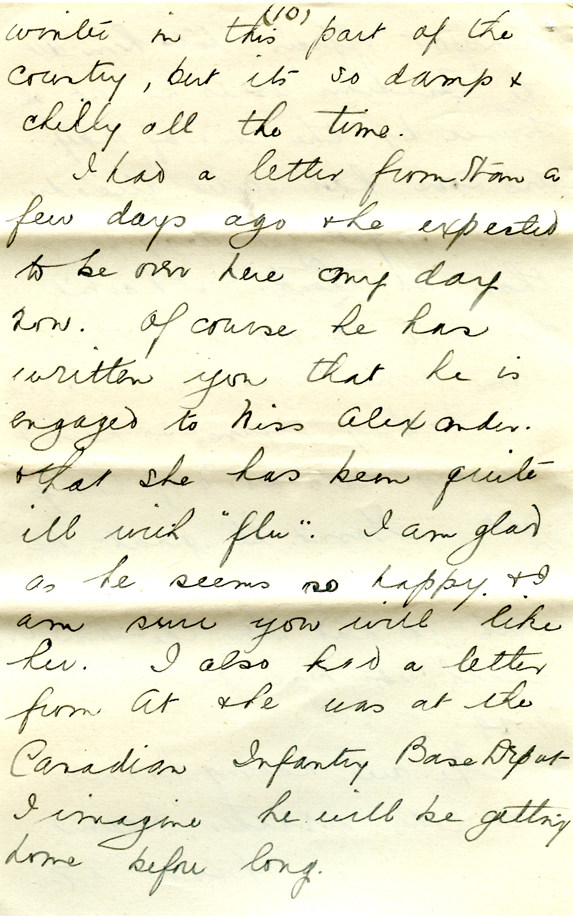 (10)
winter in this part of the
country, but its so damp &
chilly all the time.
I had a letter from Stan a
few days ago & he expected
to be over here any day
now. Of course he has
written you that he is
engaged to Miss Alexander.
& that she has been quite
ill with "flu". I am glad
as he seems so happy. & I
am sure you will like
her. I also had a letter
from At & he was at the
Canadian Infantry Base Depot
I imagine he will be getting
home before long.